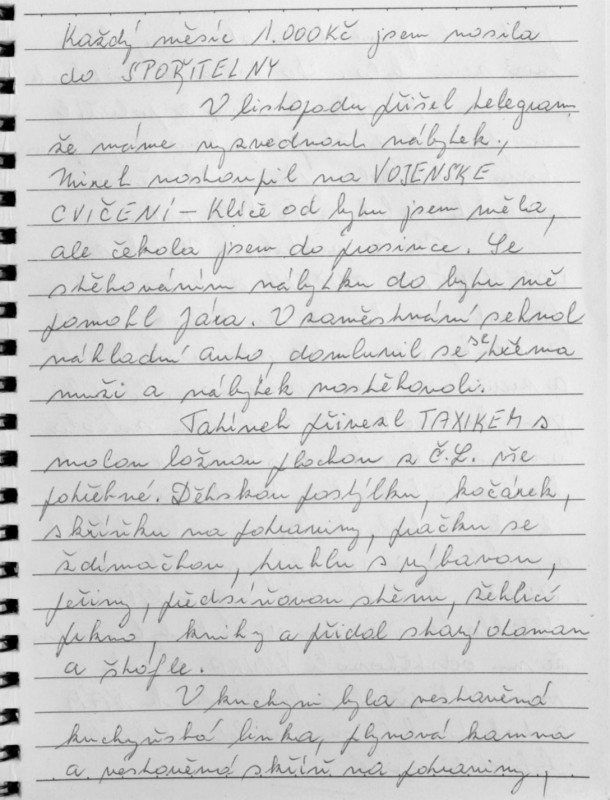 Každý měsíc 1.000Kč jsem nosila
do SPOŘITELNY
V listopadu přišel telegram,
že máme vyzvednout nábytek.,
Mirek nastoupil na VOJENSKE
CVIČENÍ – Klíče od bytu jsem měla,
ale čekala jsem do prosince. Se
stěhováním nábytku do bytu mě
pomohl Jára. V zaměstnání sehnal
nákladní auto, domluvil se se třema
muži a nábytek nastěhovali.
Tatínek přivezl TAXIKEM s
malou ložnou plochou z Č.L. vše
potřebné. Dětskou postýlku, kočárek,
skříňku na potraviny, pračku se
ždímačkou, truhlu s výbavou,
peřiny, předsíňovou stěnu, žehlící
prkno, knihy a přidal starý otoman
a štafle.
V kuchyni byla vestavěná
kuchyňská linka, plynová kamna
a vestavěná skříň na potraviny.,